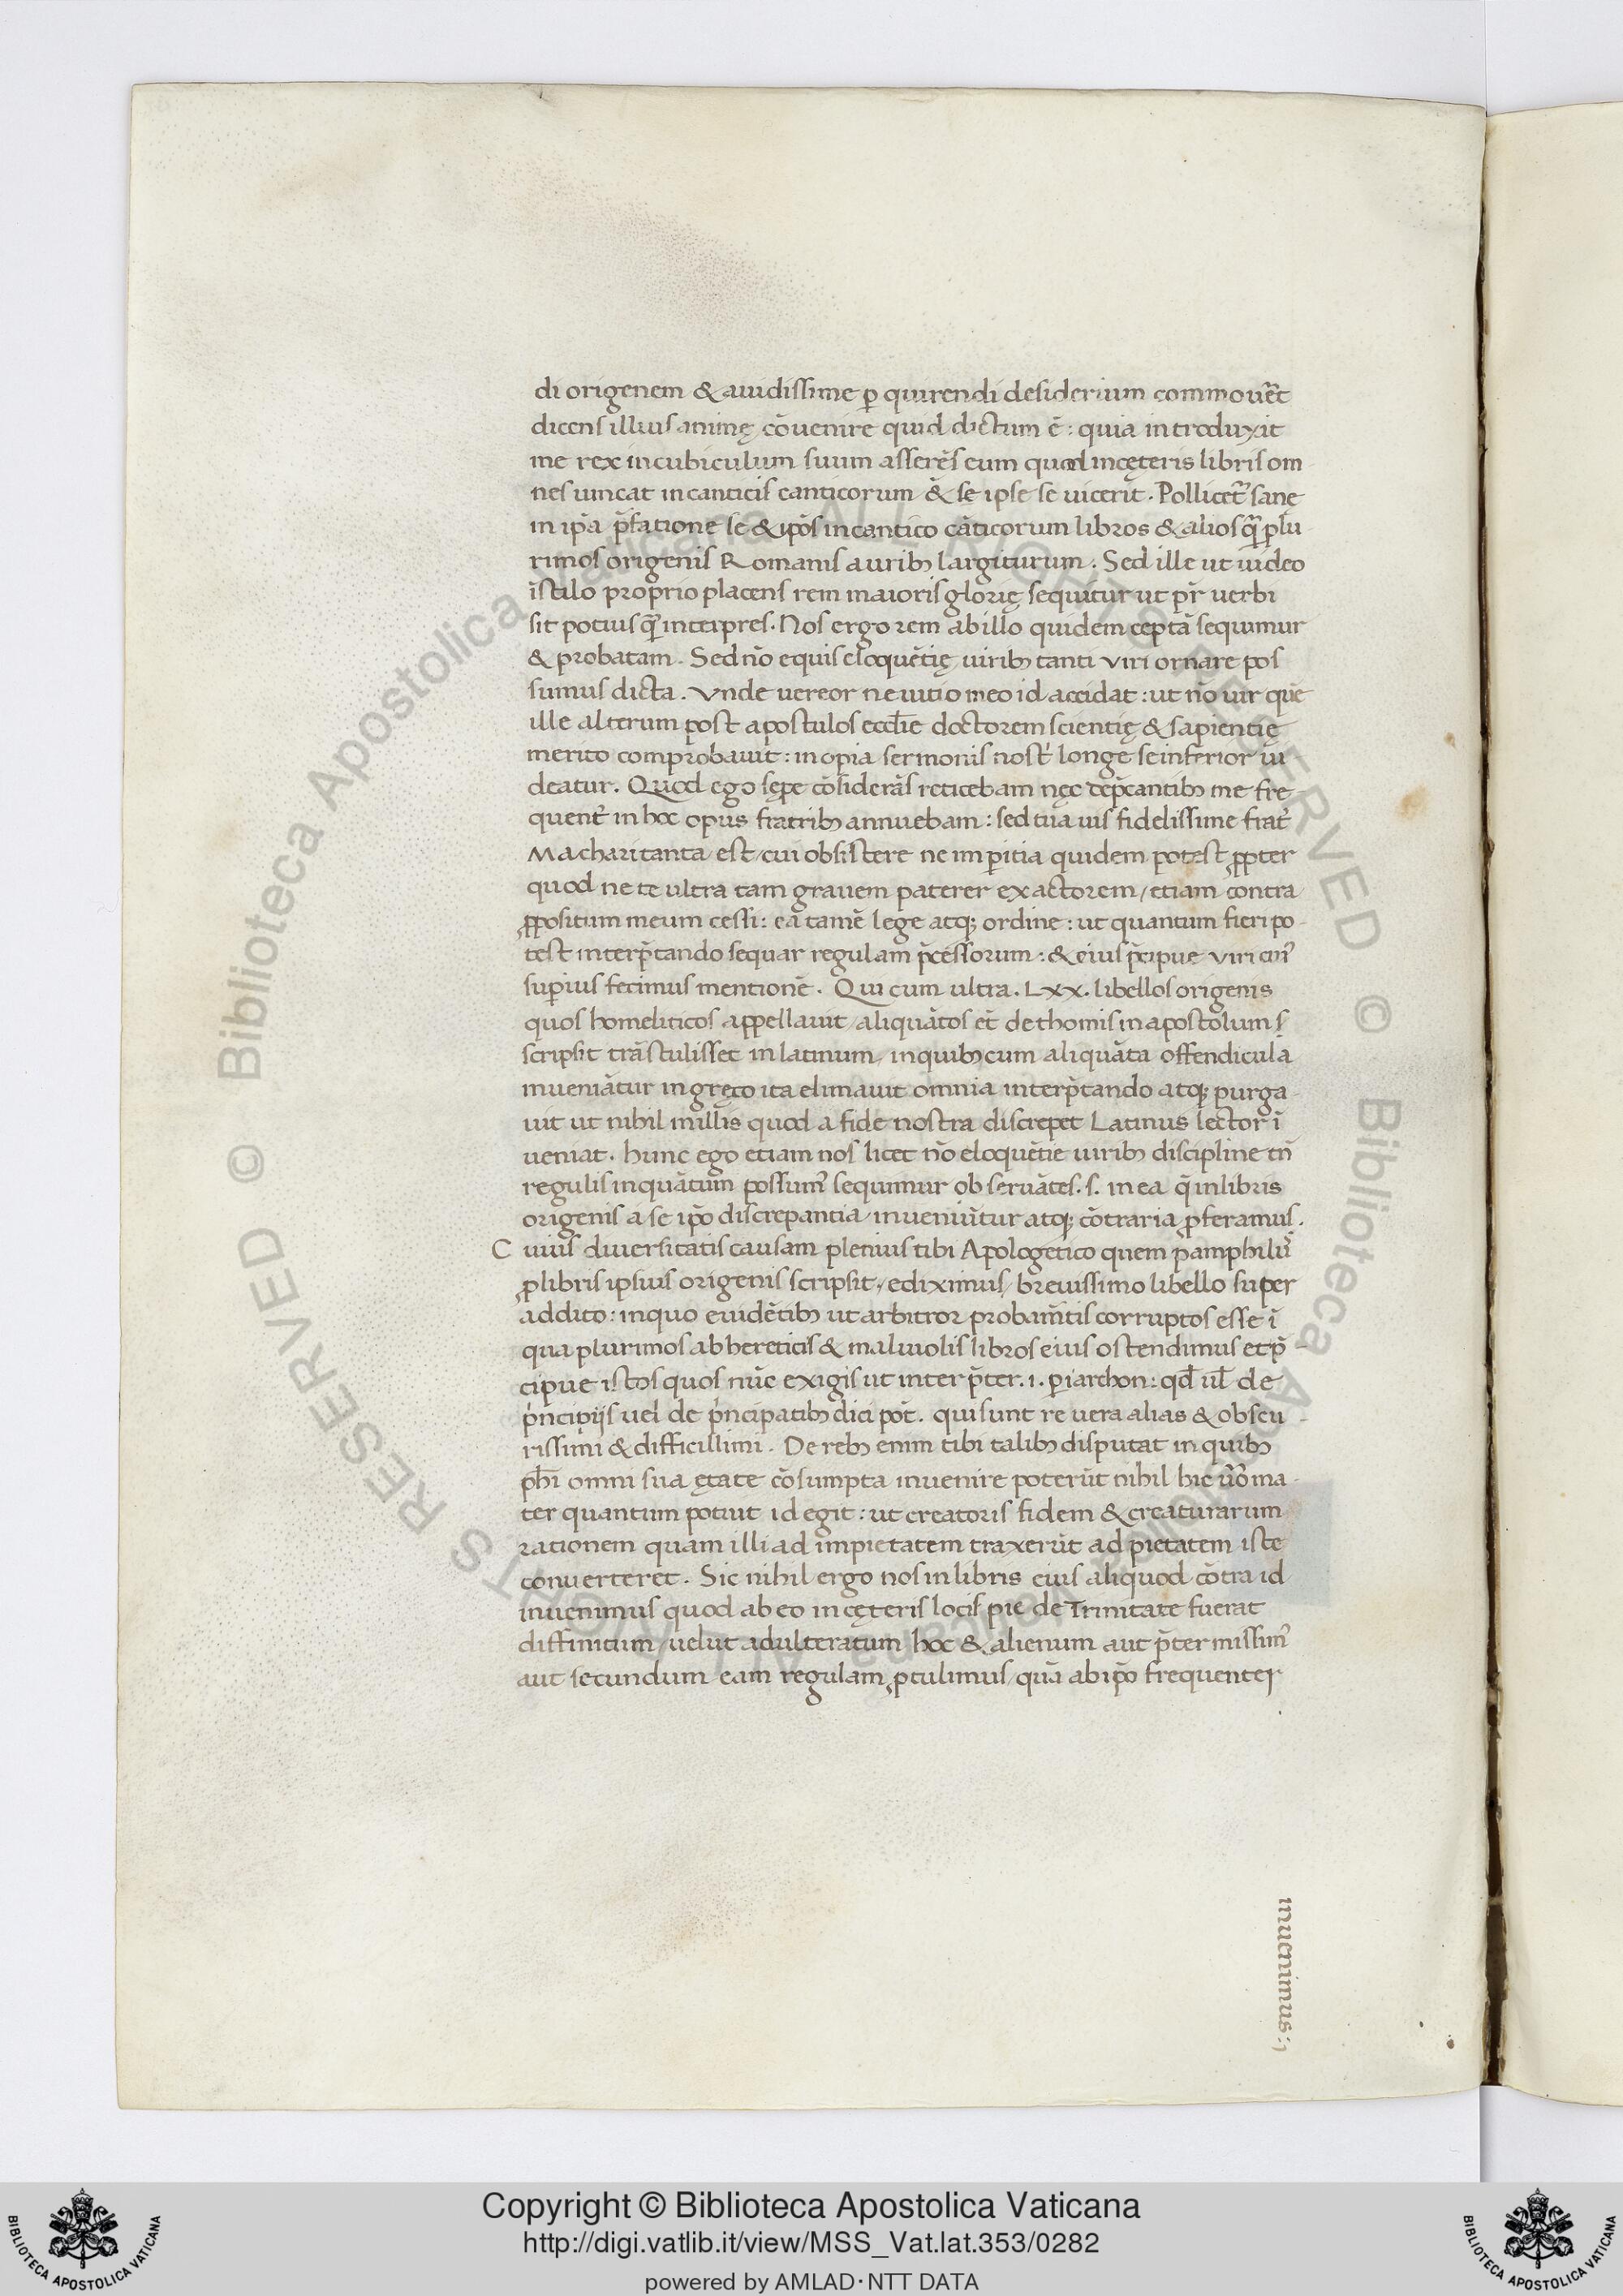 di origenem & auidissime ꝑ quirendi desiderium commou&#771;et
dicens illius animę cōuenire quid dictum ē: quia introduxit
me rex in cubiculum suum asserēs eum quod in cęteris libris om
nes uincat in canticis canticorum & se ipse se uicerit. Pollicet᷑ sane
in ip̄a p̄fatione se & ip̄os in cantico cāticorum libros & alios q̄ plu
rimos origenis Romanis auribꝫ largiturum. Sed ille ut uideo
ī stilo proprio placens rem maioris glorię sequitur ut pr̄ uerbi
sit potius q̄ interpres. Nos ergo rem ab illo quidem ceptā sequimur
& probatam. Sed nō equis eloquētię uiribꝫ tanti viri ornare pos
sumus dicta. Vnde uereor ne uitio meo id accidat: ut nō uir quē
ille alterum post apostulos eccl̄ie doctorem scientię & sapientię
merito comprobauit: inopia sermonis nost̓ longe se inferior ui
deatur. Quod ego sępe cōsiderās reticebam nec dep̄cantibꝫ me fre
quent᷑ in hoc opus fratribꝫ annuebam: sed tua uis fidelissime frat᷑
Machari tanta est / cui obsistere ne imꝑitia quidem potest ꝓpter
quod ne te ultra tam grauem paterer exactorem / etiam contra
ꝓpositum meum cessi: ea tamē lege atqꝫ ordine: ut quantum fieri po
test interp̄tando sequar regulam p̄cessorum: & eius p̄cipue viri cui᷒
suꝑius fecimus mentionē. Qui cum ultra .Lxx. libellos origenis
quos homeliticos appellauit / aliquātos et̄ de thomis in apostolum s
scripsit trāstulisset in latinum / in quibꝫ cum aliquāta offendicula
inueniātur in gręco ita elimauit omnia interp̄tando atqꝫ purga
uit ut nihil in illis quod a fide nostra discrepet Latinus lector ī
ueniat. hunc ego etiam nos licet nō eloquētie uiribꝫ discipline tn̄
regulis in quātum possum᷒ sequimur obseruātes .s. in ea q̄ in libris
origenis a se ip̄o discrepantia inueniūtur atqꝫ cōtraria ꝓferamus.
Cuius diuersitatis causam plenius tibi Apologetico quem pamphilu᷒
ꝓ libris ipsius origenis scripsit / ediximus / breuissimo libello super
addito: in quo euidētibꝫ ut arbitror probam̄tis corruptos esse ī
qua plurimos ab hereticis & maliuolis libros eius ostendimus et p̄
cipue istos quos nūc exigis ut interp̄ter .i. ꝑiarchon: qd̄ ul̄ de
p̓ncipijs uel de p̓ncipatibꝫ dici pōt. qui sunt re uera alias & obscu
rissimi & difficillimi. De rebꝫ enim tibi talibꝫ disputat in quibꝫ
ph̄i omni sua ętate cōsumpta inuenire poterūt nihil hic u̅o ma
ter quantum potuit id egit: ut creatoris fidem & creaturarum
rationem quam illi ad impietatem traxerūt ad pietatem iste
conuerteret. Sic nihil ergo nos in libris eius aliquod cōtra id
inuenimus quod ab eo in cęteris locis pie de Trinitate fuerat
diffinitum / uelut adulteratum hoc & alienum aut p̄termissim᷒
aut secundum eam regulam ꝓtulimus / quā ab ip̄o frequenter
inuenimus:
Copyright © Biblioteca Apostolica Vaticana
http://digi.vatlib.it/view/MSS_Vat.lat.353/0282
powered by AMLAD·NTT DATA